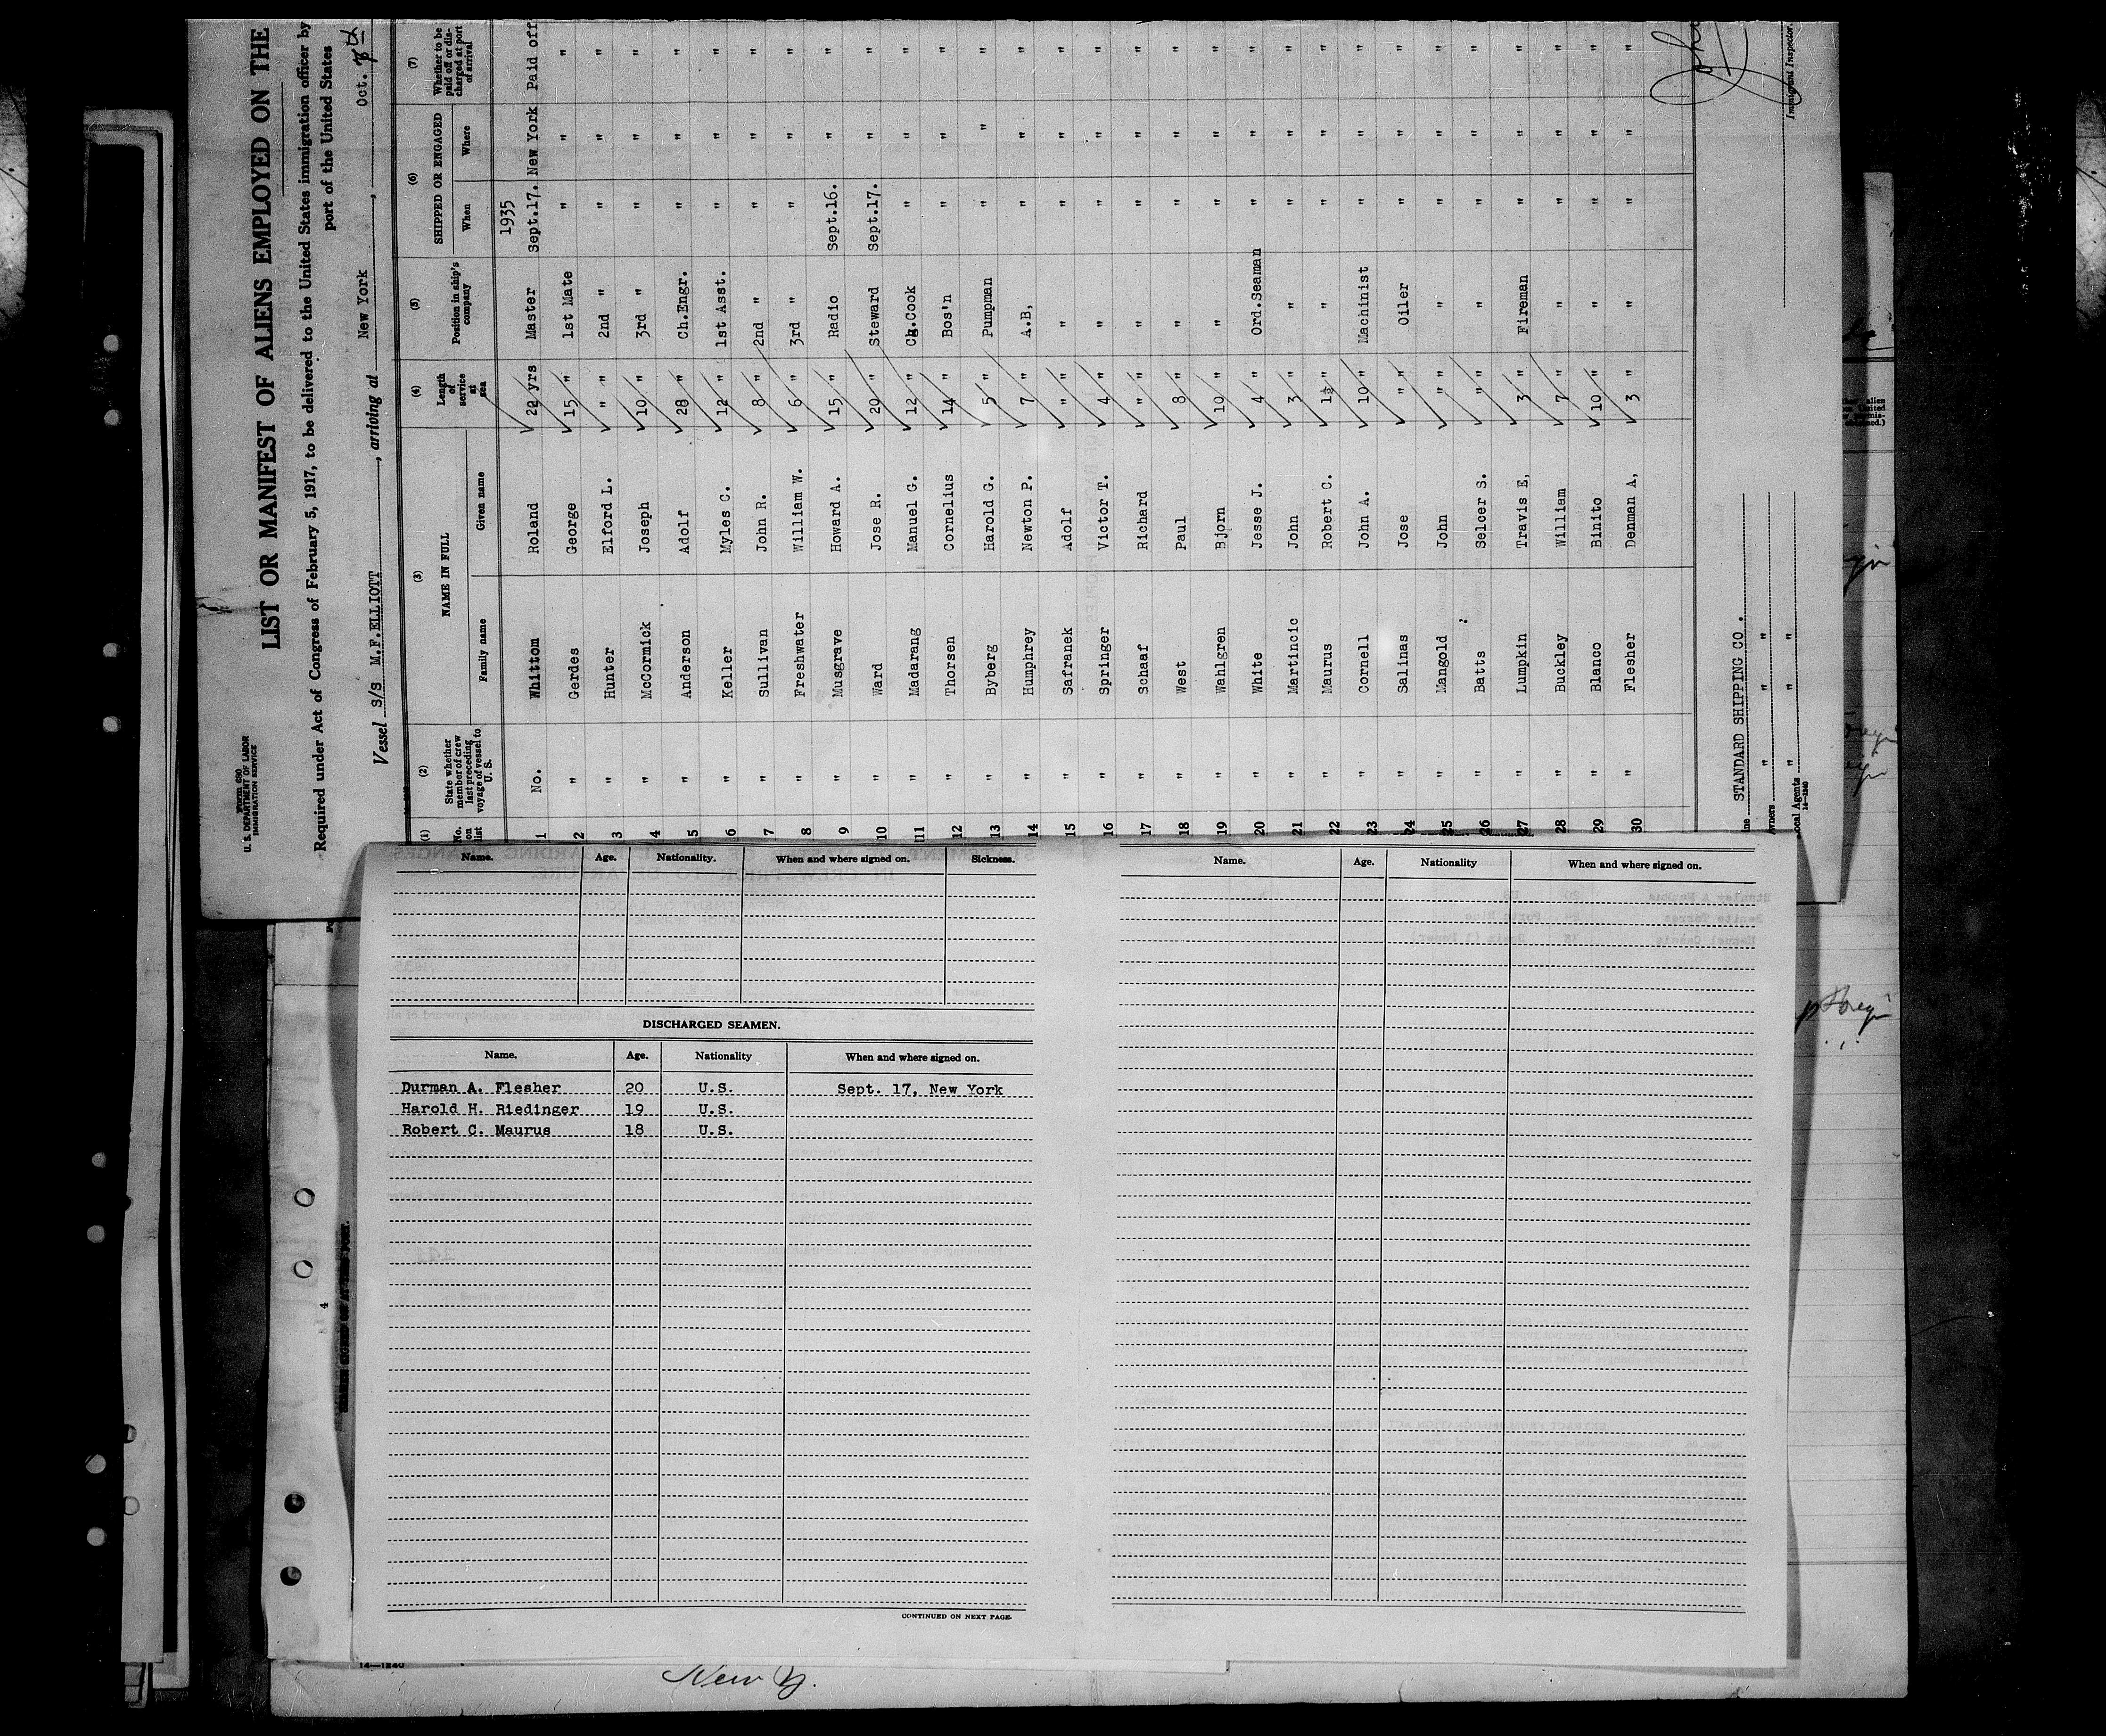 Form 680
U. S. DEPARTMENT OF LABOR
IMMIGRATION SERVICE
LIST OR MANIFEST OF ALIENS EMPLOYED ON THE
Required under Act of Congress of February 5, 1917, to be delivered to the United States immigration officer by
port of the United States
Vessel S/S M.F.ELLIOTT, arriving at New York, Oct. 8th
(1) (2) (3) (4) (5) (6) (7)
No. on list State whether member of crew last preceding voyage of vessel to U. S. NAME IN FULL Length of service at sea Position in ship's company SHIPPED OR ENGAGED Whether to be paid off or discharged at port of arrival
Family name Given name When Where
1935
1 No. Whittom Roland 22 yrs Master Sept.17. New York Paid off
2 " Gerdes George 15 " 1st Mate " " "
3 " Hunter Elford L. " " 2nd " " " "
4 " McCormick Joseph 10 " 3rd " " " "
5 " Anderson Adolf 28 " Ch.Engr. " " "
6 " Keller Myles C. 12 " 1st Asst. " " "
7 " Sullivan John R. 8 " 2nd " " " "
8 " Freshwater William W. 6 " 3rd " " " "
9 " Musgrave Howard A. 15 " Radio Sept.16. " "
10 " Ward Jose R. 20 " Steward Sept.17. " "
11 " Madarang Manuel G. 12 " Ch.Cook " " "
12 " Thorsen Cornelius 14 " Bos'n " " "
13 " Byberg Harold G. 5 " Pumpman " " "
14 " Humphrey Newton P. 7 " A.B, " " "
15 " Safranek Adolf " " " " " "
16 " Springer Victor T. 4 " " " " "
17 " Schaaf Richard " " " " " "
18 " West Paul 8 " " " " "
19 " Wahlgren Bjorn 10 " " " " "
20 " White Jesse J. 4 " Ord.Seaman " " "
21 " Martincic John 3 " " " " "
22 " Maurus Robert C. 1½ " " " " "
23 " Cornell John A. 10 " Machinist " " "
24 " Salinas Jose " " Oiler " " "
25 " Mangold John " " " " " "
26 " Batts Selcer S. " " " " " "
27 " Lumpkin Travis E, 3 " Fireman " " "
28 " Buckley William 7 " " " " "
29 " Blanco Binito 10 " " " " "
30 " Flesher Denman A, 3 " " " " "
STANDARD SHIPPING CO.
" "
" "
Local Agents
Immigrant Inspector.
Name. Age. Nationality. When and where signed on. Sickness.
DISCHARGED SEAMEN.
Name. Age. Nationality When and where signed on.
Durman A. Flesher 20 U.S. Sept. 17, New York
Harold H. Riedinger 19 U.S.
Robert C. Maurus 18 U.S.
CONTINUED ON NEXT PAGE.
Name. Age. Nationality When and where signed on.
4
14—1240
New Y.